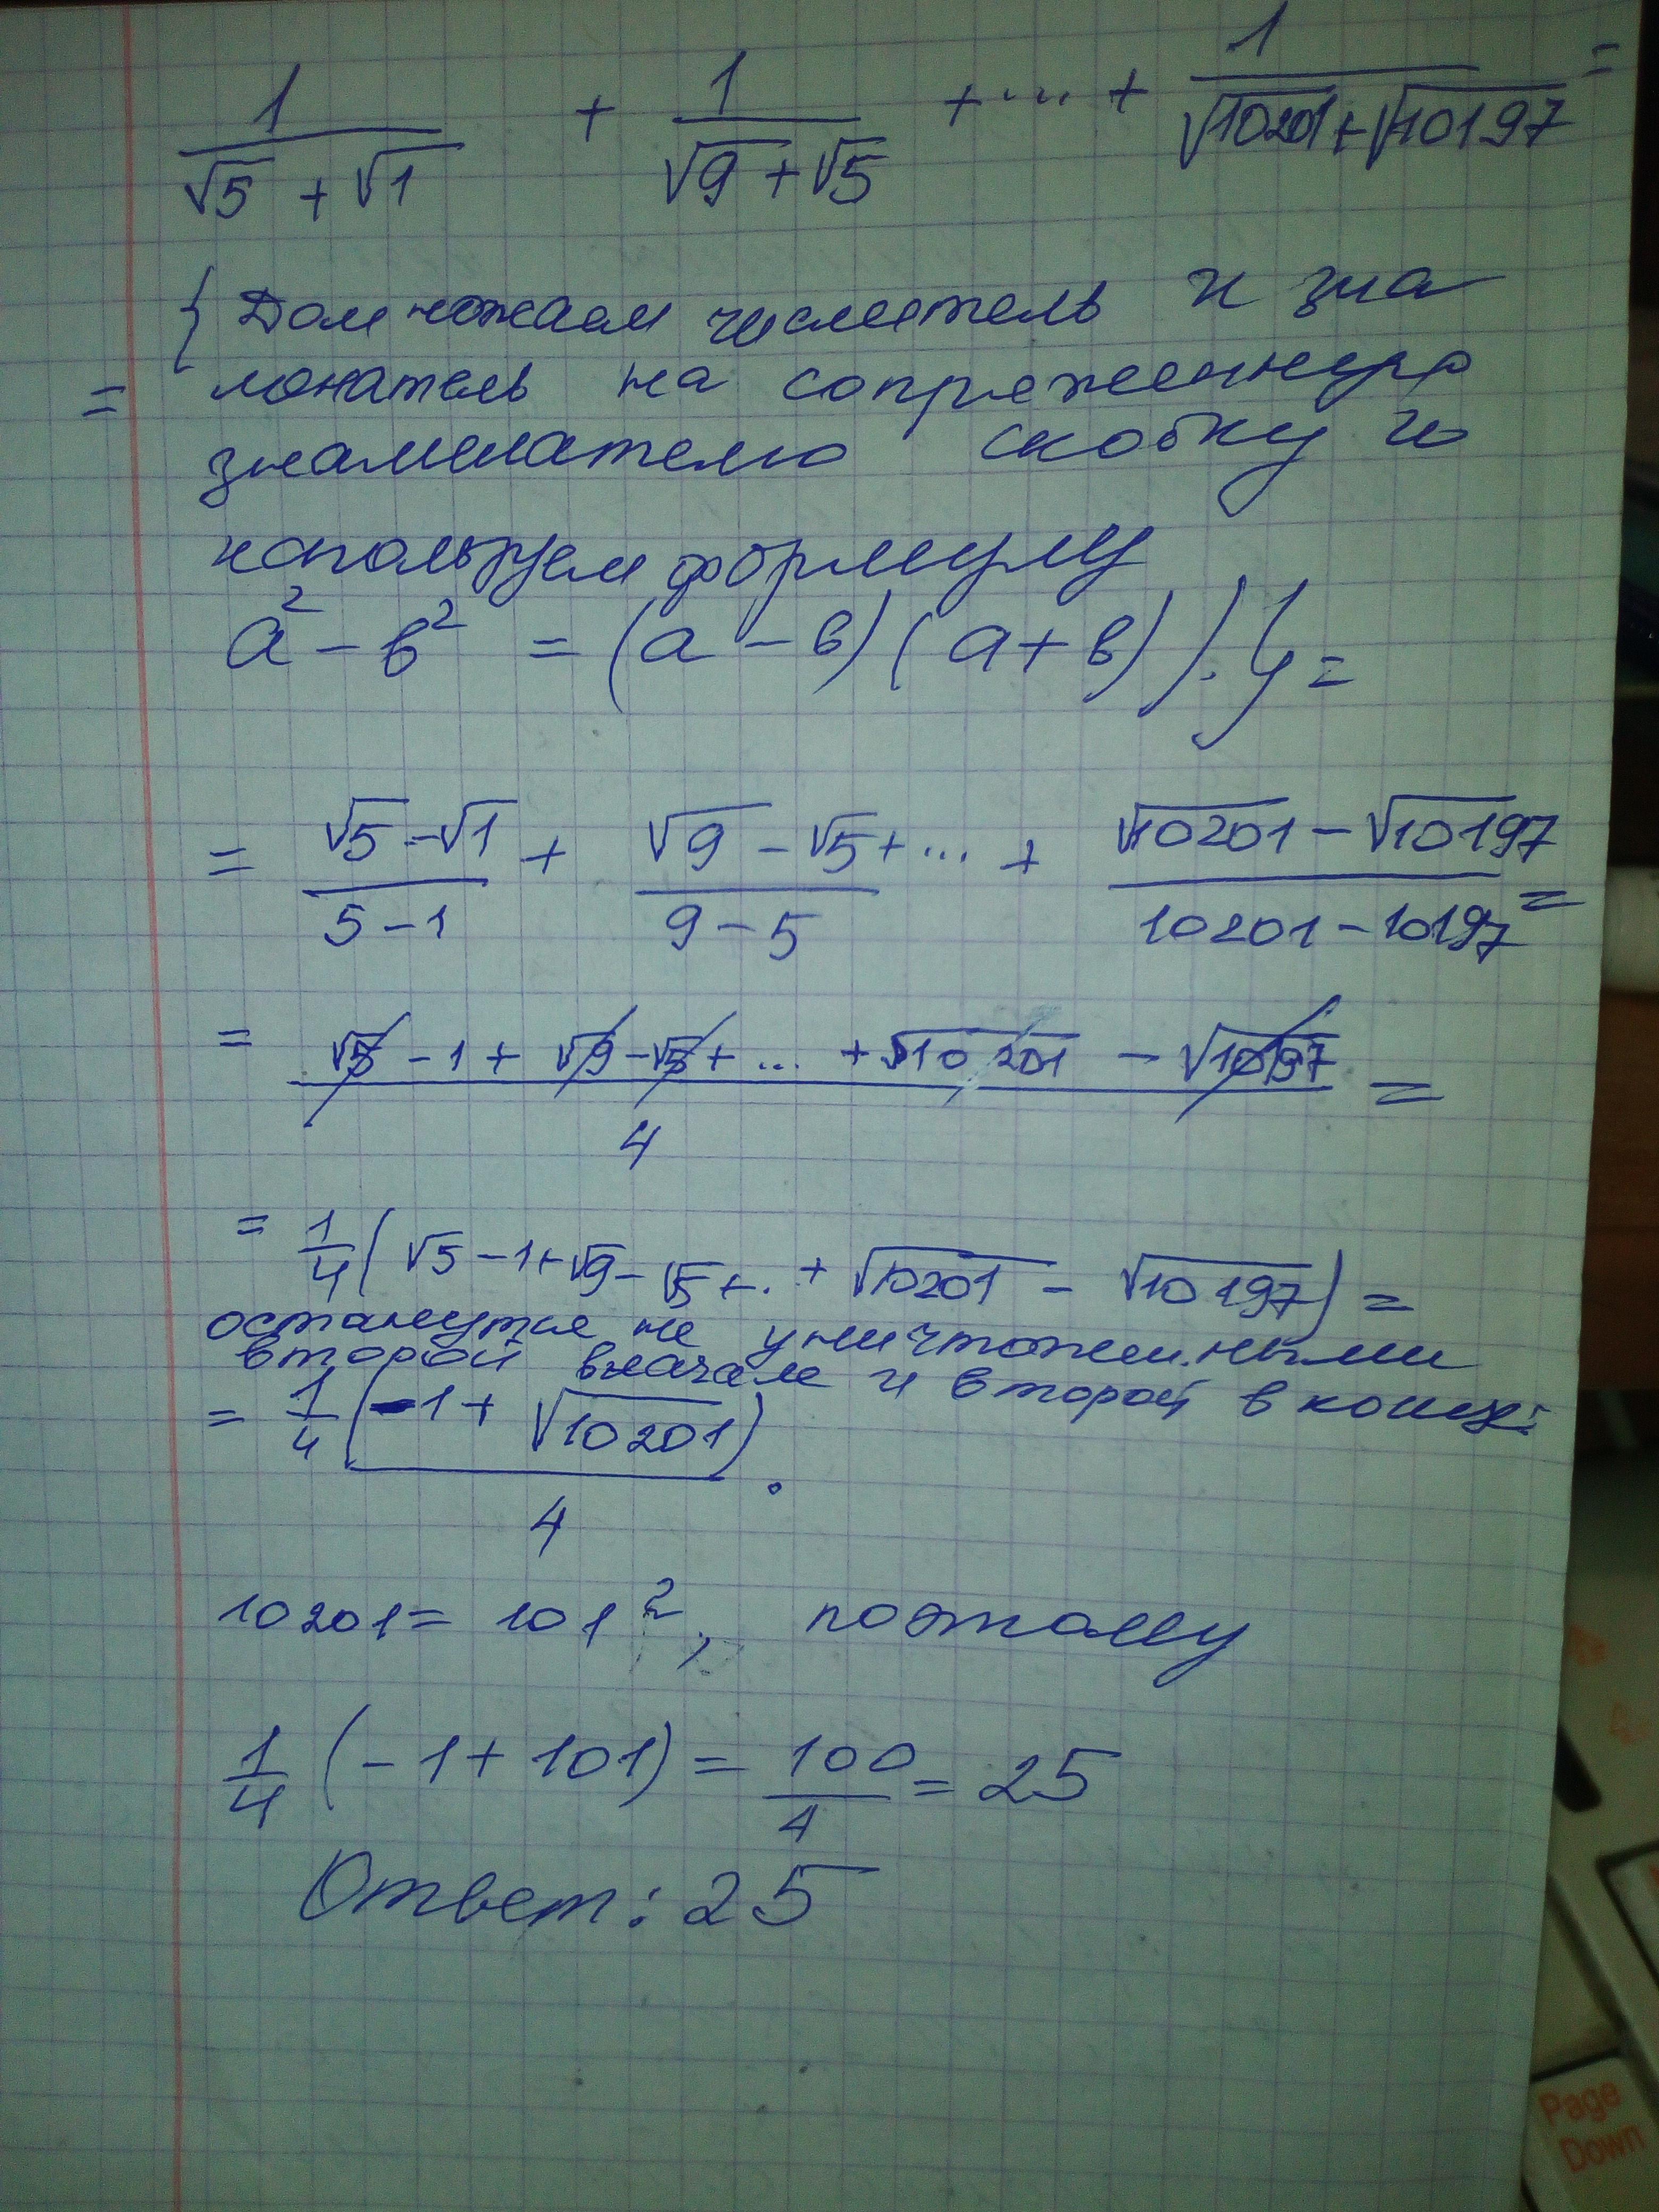 1/(√5 + √1) + 1/(√9 + √5) + ... + 1/(√10201 + √10197) =
{ Домножаем числитель и зна
= менатель на сопряженную
знаменателю скобку и
используем формулу
a² - в² = (a - в)(a + в) ). } =
= (√5 - √1)/(5 - 1) + (√9 - √5)/(9 - 5) + ... + (√10201 - √10197)/(10201 - 10197) =
= (√5 - 1 + √9 - √5 + ... + √10201 - √10197)/4 =
= 1/4 (√5 - 1 + √9 - √5 + .. + √10201 - √10197) =
останутся не уничтоженными
второй вначале и второй в конце:
= 1/4 (-1 + √10201)/4.
10201 = 101², поэтому
1/4 (-1 + 101) = 100/4 = 25
Ответ: 25
Page
Down